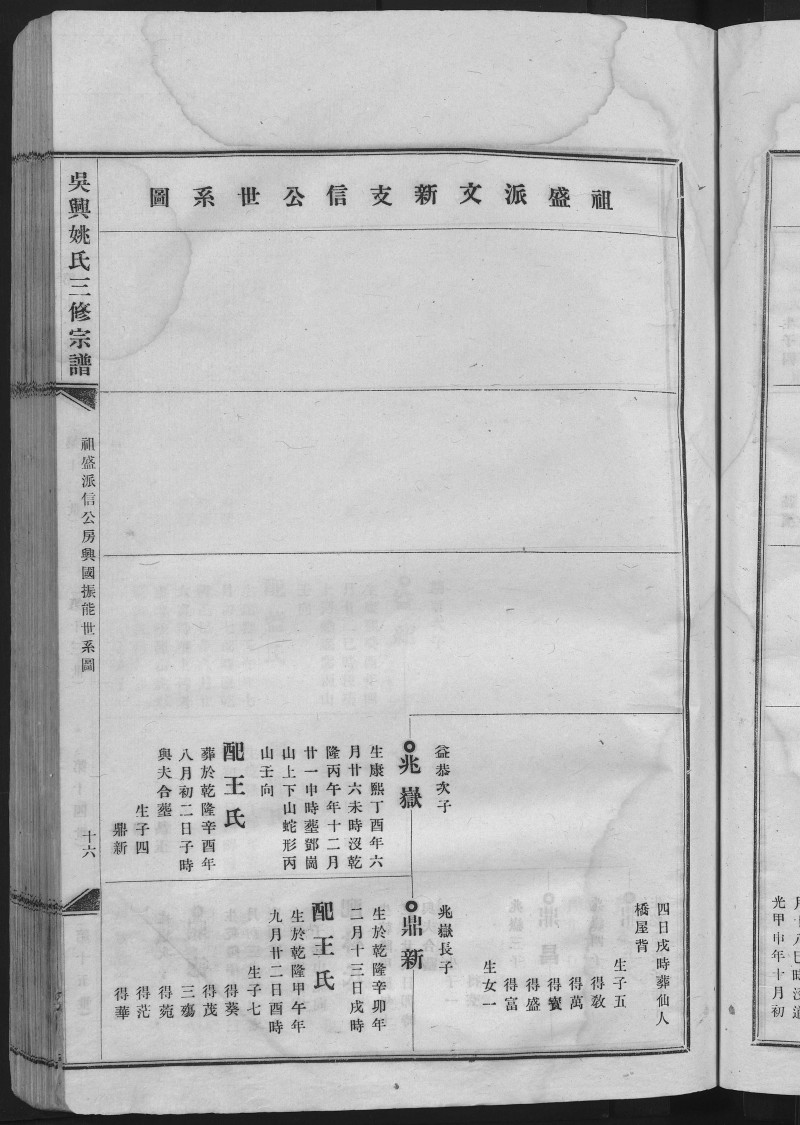 祖盛派文新支信公世系圖
四日戌時葬仙人
橋屋背
生子五
得教
得萬
得寳
得盛
得富
生女一
益恭次子
兆嶽
生康熙丁酉年六
月廿六未時沒乾
隆丙午年十二月
廿一申時塟鄧崗
山上下山蛇形丙
山壬向
配王氏
葬於乾隆辛酉年
八月初二日子時
與夫合塟
生子四
鼎新
兆嶽長子
鼎新
生於乾隆辛卯年
二月十三日戌時
配王氏
生於乾隆甲午年
九月廿二日酉時
生子七
得葵
得茂
三蕩
得菀
得茫
得華
吳興姚氏三修宗譜
祖盛派信公房興國振能世系圖
十六
光甲申年十月初